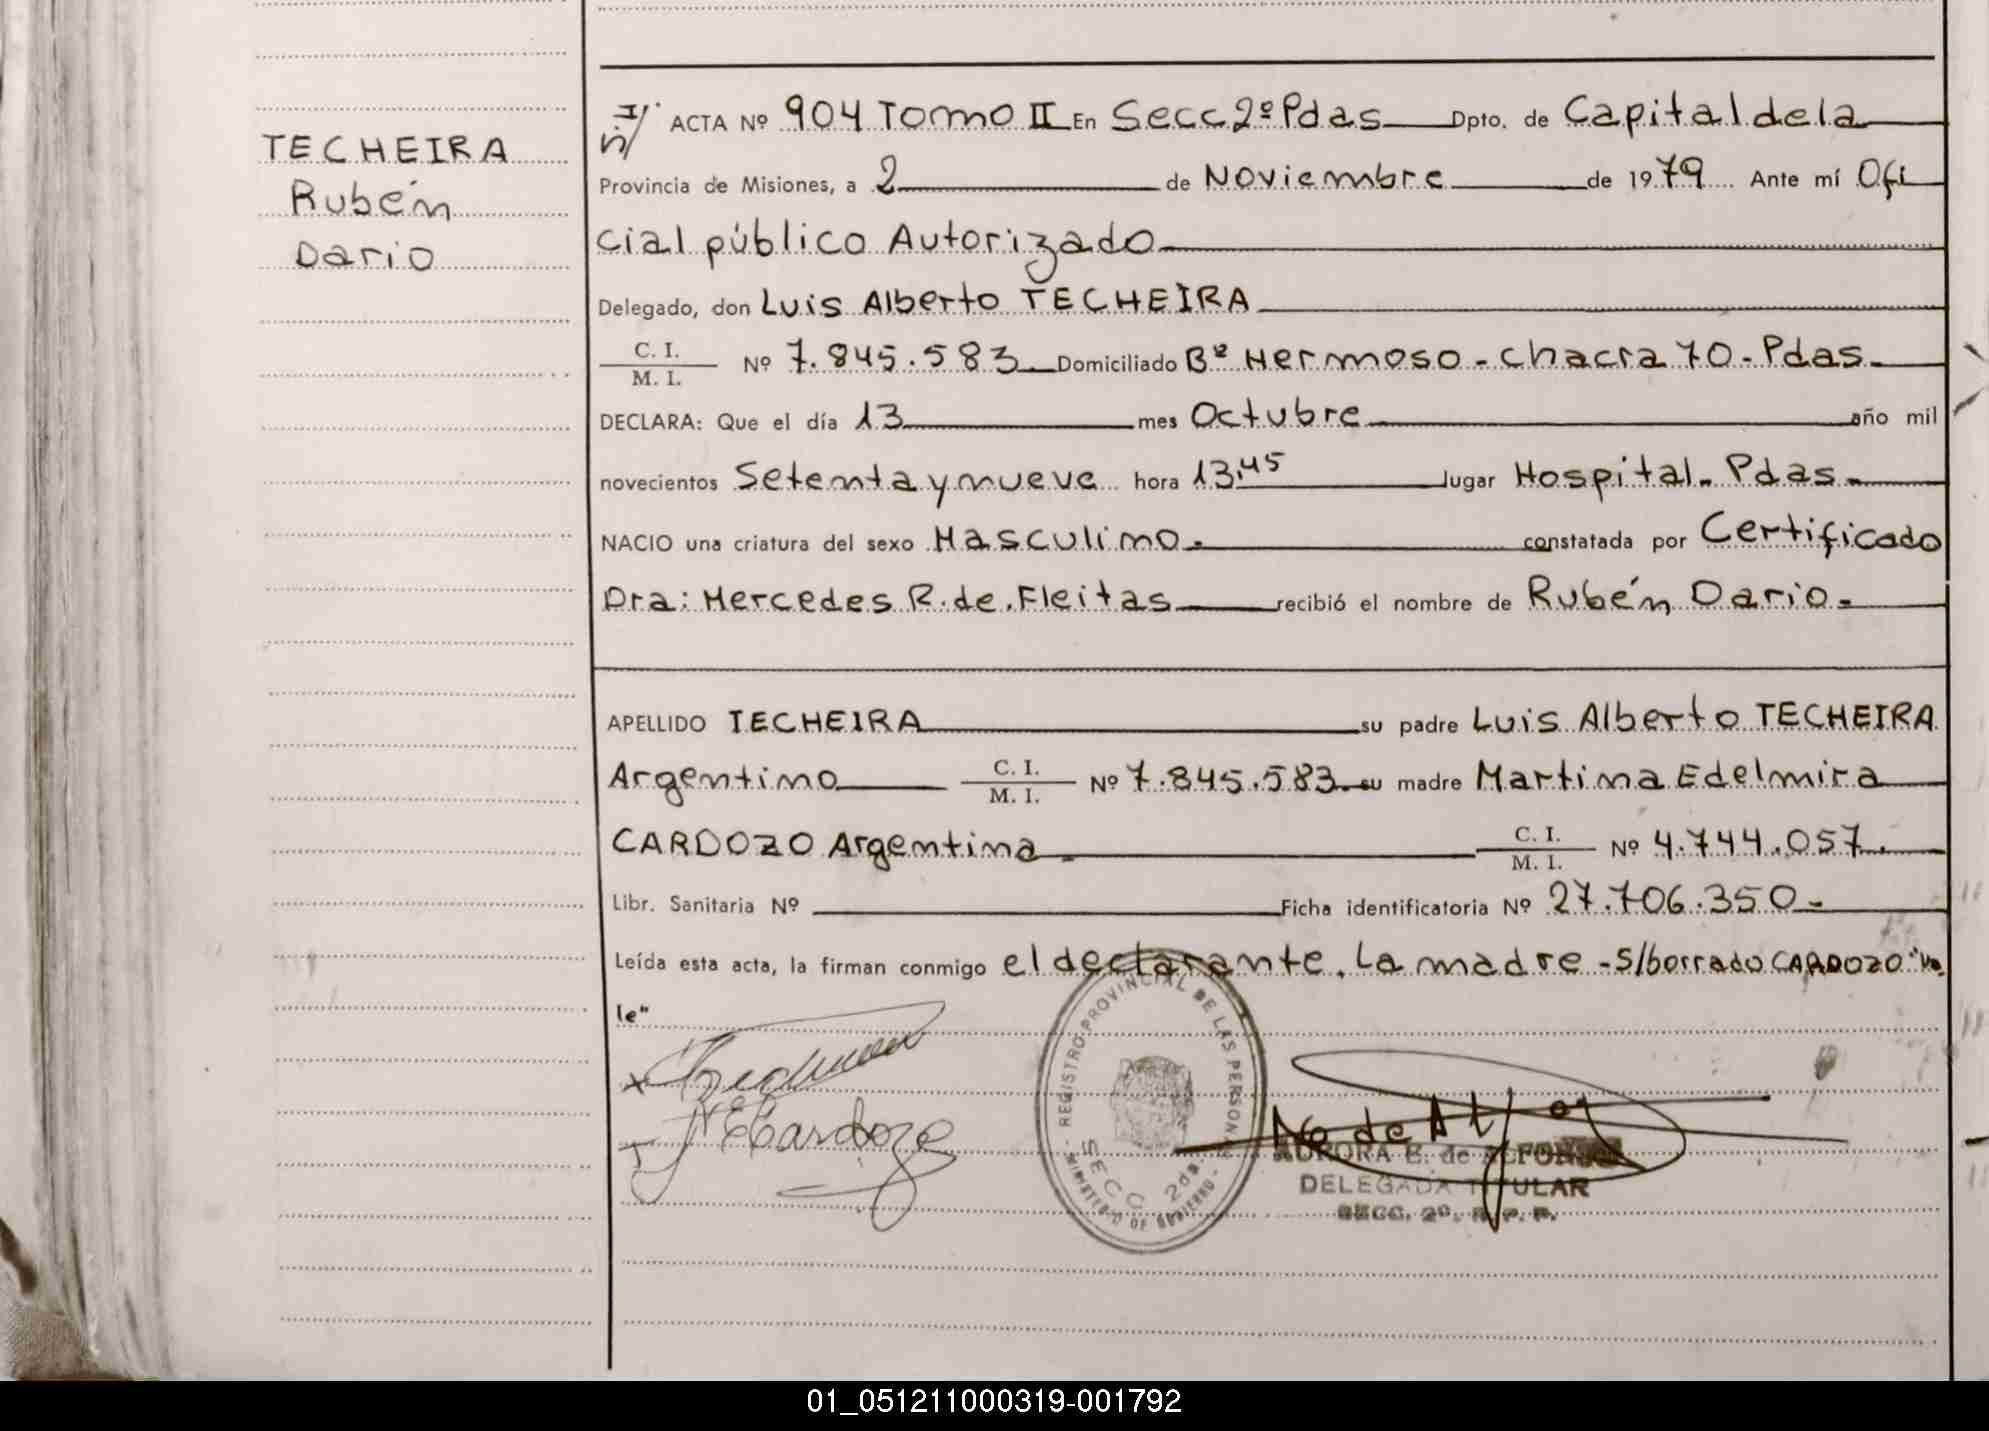 TECHEIRA
Rubén
Dario
ACTA Nº 904 Tomo II En Secc 2º Pdas Dpto. de Capital de la
Provincia de Misiones, a 2 de Noviembre de 1979 Ante mí Ofi
cial público Autorizado
Delegado, don Luis Alberto TECHEIRA
C. I.
M. I. Nº 7.845.583 Domiciliado Bº Hermoso - chacra 70 - Pdas
DECLARA: Que el día 13 mes Octubre año mil
novecientos Setenta y nueve hora 13,45 lugar Hospital - Pdas.
NACIO una criatura del sexo Masculino - constatada por Certificado
Dra: Mercedes R. de Fleitas recibió el nombre de Rubén Dario -
APELLIDO TECHEIRA su padre Luis Alberto TECHEIRA
Argentino C. I.
M. I. Nº 7.845.583 su madre Martina Edelmira
CARDOZO Argentina C. I.
M. I. Nº 4.744.057.
Libr. Sanitaria Nº Ficha identificatoria Nº 27.706.350 -
Leída esta acta, la firman conmigo el declarante, La madre - S/borrado CARDOZO "Va
le"
M E Cardozo
REGISTRO PROVINCIAL DE LAS PERSONAS
SECC 2da.
MINISTERIO DE GOBIERNO
AURORA E. de ALFONSO
DELEGADA TITULAR
SECC. 2º. R. P. P.
01_051211000319-001792